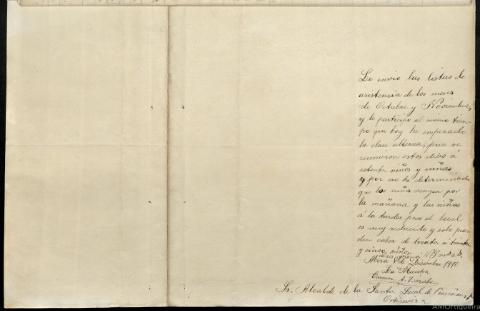 Le envio las listas de
asistencia de los meses
de Octubre y Noviembre,
y le participo al mismo tiem-
po que hoy he empezado
la clase alterna, pues se
reunieron estos dias á
setenta niños y niñas,
y por eso he determinado
que los niños vengan por
la mañana y las niñas
á la tarde, pues el local
es muy reducido y solo pue-
den caber de treinta á treinta
y cinco niños
Mera Diciembre 1910
La Maestra
Carmen
Sr. Alcalde de la Junta Local de
Ortigueira
AMOrtigueira